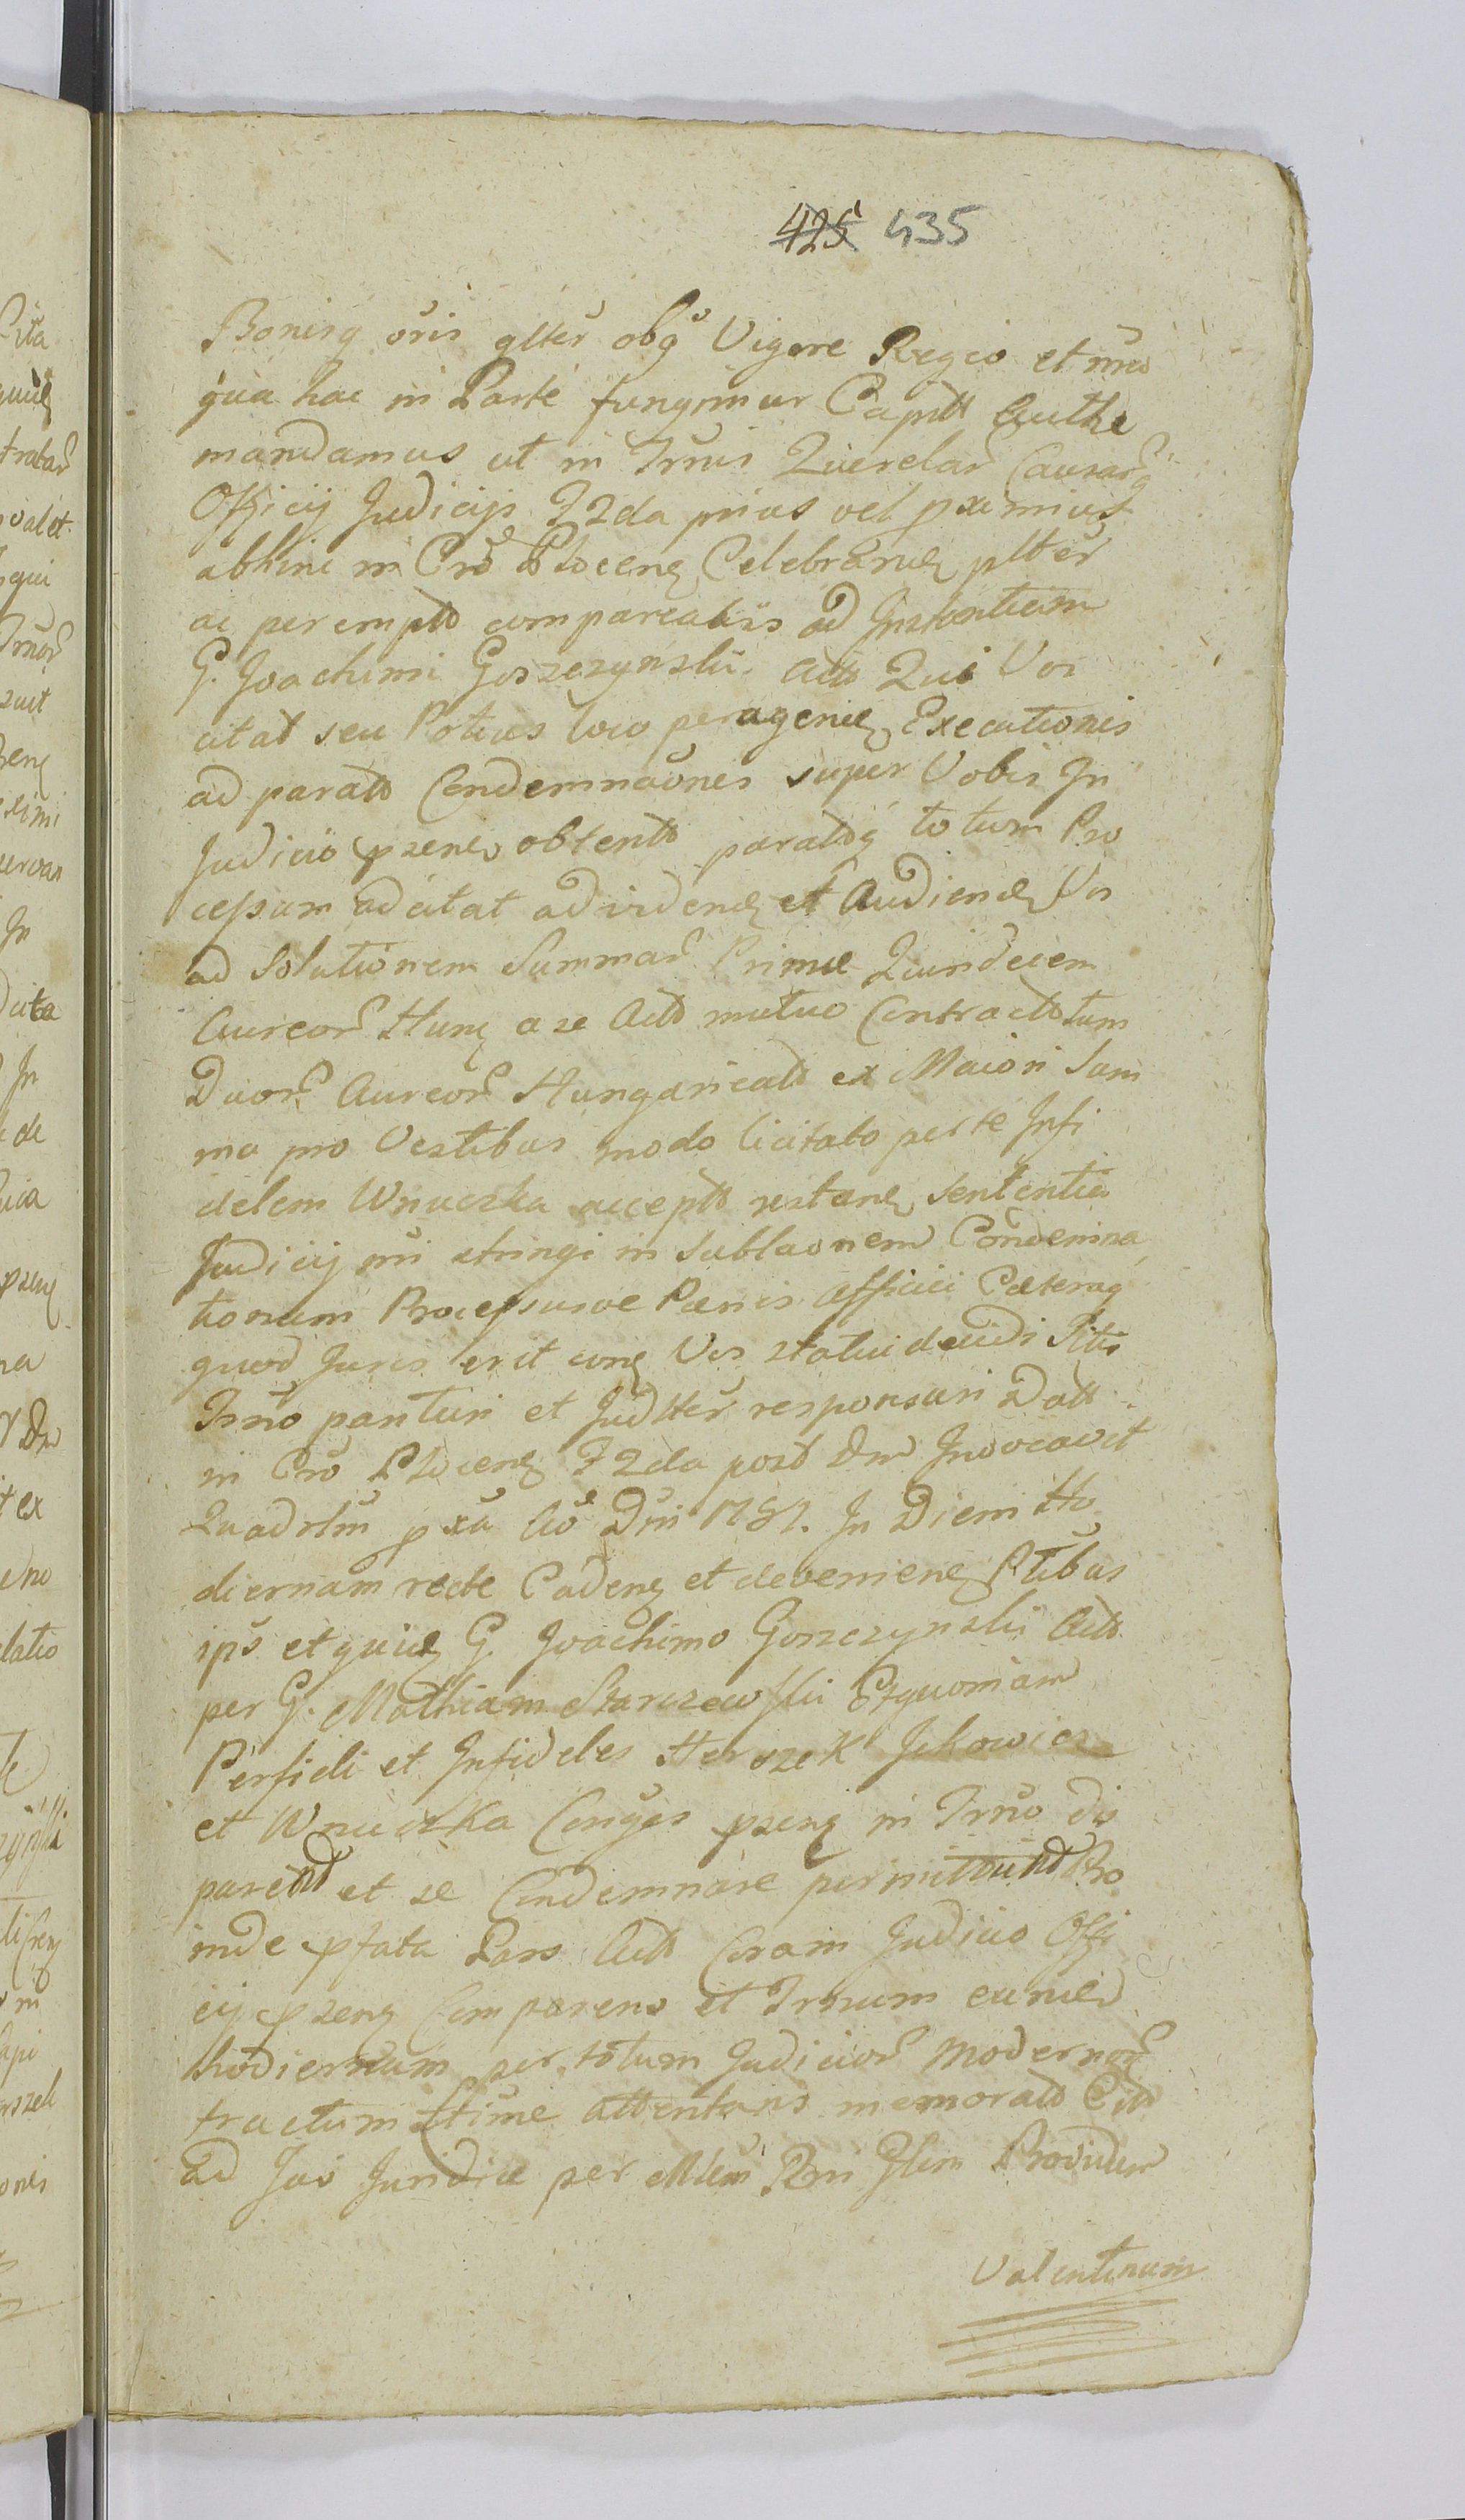 425 435
Bonisq oris glter obgs Vigore Regio et nro
qua hac in Parte fungimur Captt Autthe
mandamus ut in Trnis Querelar Causarq
Officij Judicijs F2da prius vel pximius
abhinc in Cro Plocenẽ Celebrandẽ pltter
ac perempto compareatis ad Instantiam
G. Joachimi Goszczynski Actts Qui Vos
citat seu Potius loco peragendẽ Executionis
ad paratts Condemnaones super Vobis In
Judicio psenẽ obtentts parattsq totum Pro
cessum adcitat ad videndẽ et Audiendẽ Vos
ad Solutionem Summar Primæ Quindecem
Aureor Hunẽ a se Actts mutuo Contracttstum
Duor Aureor Hungaricatts ex Maiori Sum
ma pro Vestibus modo licitato per te Infi
delem Wnuczka acceptts restanẽ Sententia
Judicij nri stringi in Sublaonem Condemna
tionum Processusve Pænis Affici Cæteraq
quod Juris erit conẽ Vos statui decidi Sitis
Trno parituri et Judtter responsuri Datt
in Cro Plocenẽ F2da post Dnm Invocavit
Quadrlm pxa Ao Dni 1787. In Diem Ho
diernam recte Cadenẽ et devenienẽ Ptibus
ips et quidẽ G. Joachimo Goszczynski Actts
per G. Mathiam Starczewski Exquoniam
Perfidi et Infideles Herszek Jckowicz
et Wnuczka Conges psenẽ in Trno dis
parent et se Condemnare permittunt Pro
inde pfata Pars Actts Coram Judicio Offi
cij psenẽ Comparens et Trnum eundẽ
hodiernum per totum Judicior modernor
tractum Ltime attentans memoratts Citts
ad Jus Juridice per Mlem Rni Glem Providum
Valentinum